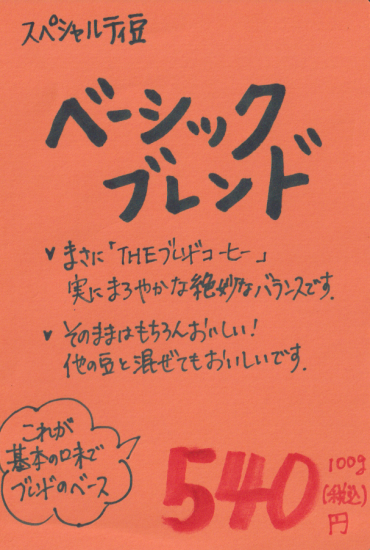 スペシャルティ豆
ベーシック
ブレンド
まさに「THEブレンドコーヒー」
実にまろやかな絶妙なバランスです.
そのままはもちろんおいしい!
他の豆と混ぜてもおいしいです.
これが
基本の味で
ブレンドのベース
540
100g
(税込)
円